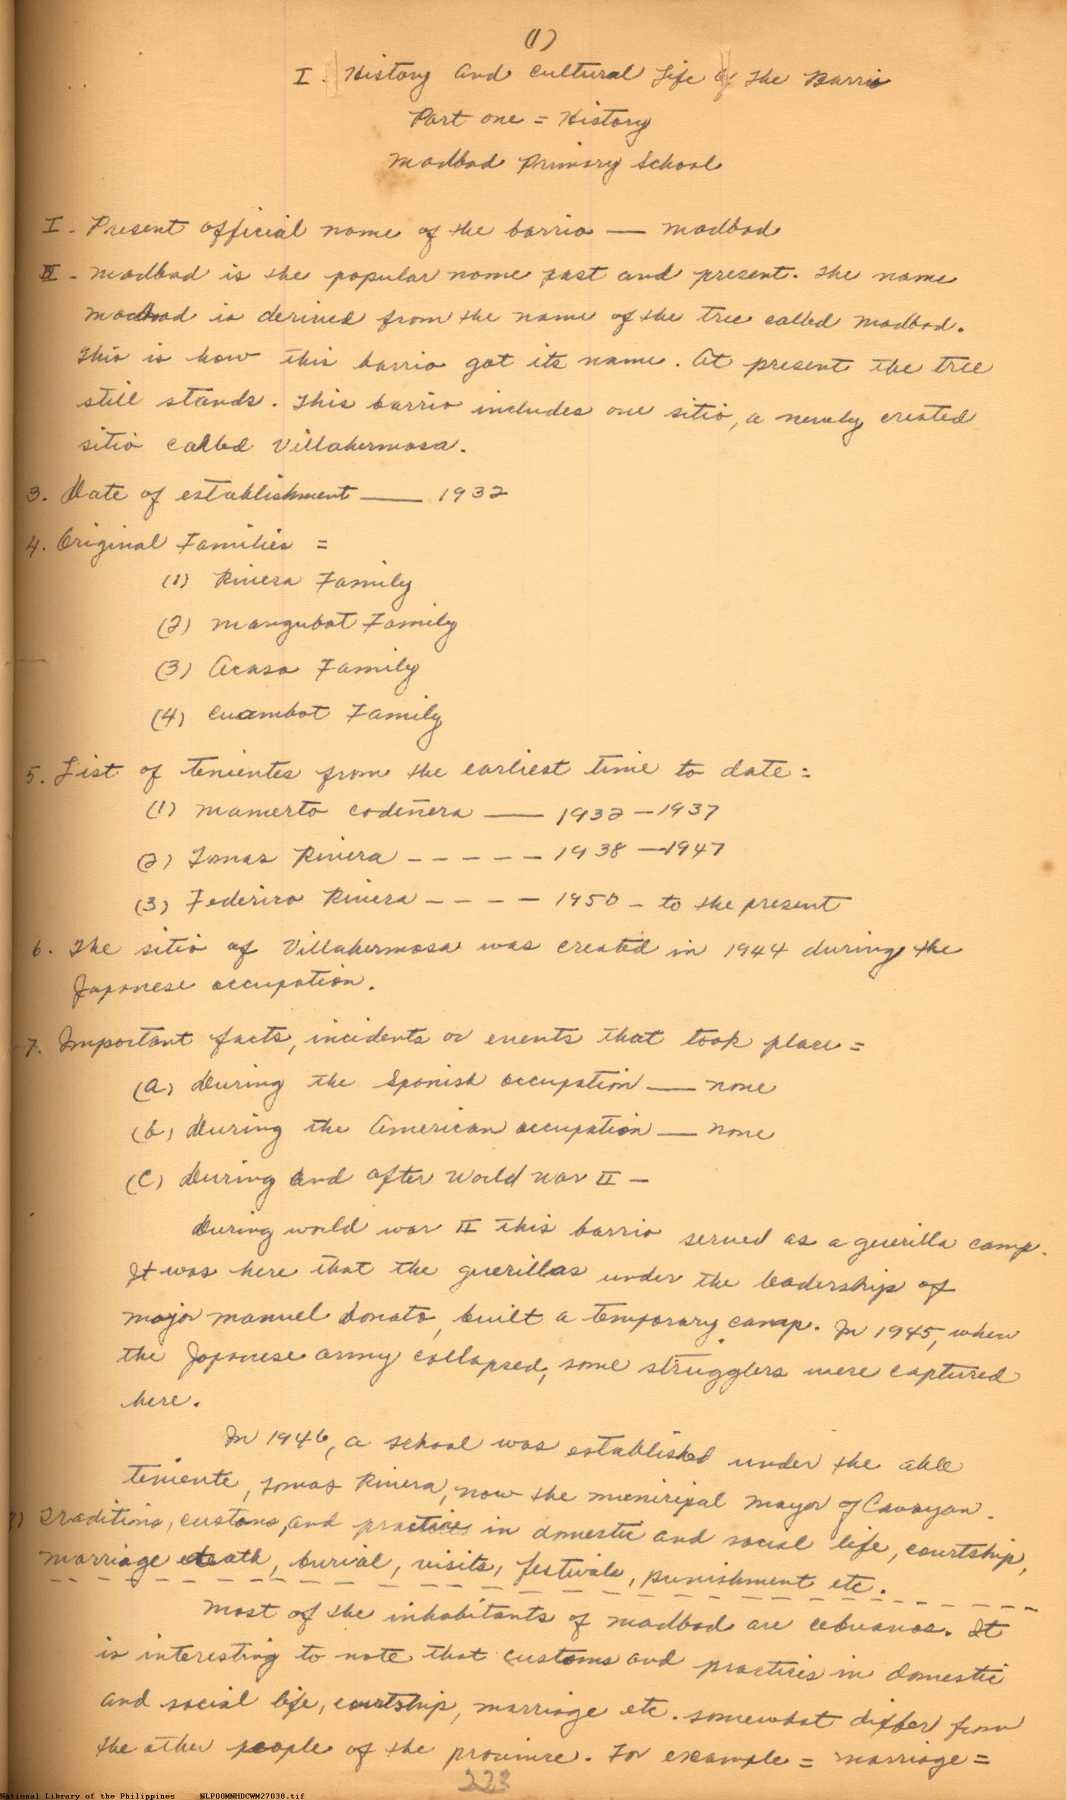 (1)
I. History and Cultural Life of the Barrio
Part one = History
Madbad Primary School
I - Present official name of the barrio — Madbad
II - Madbad is the popular name past and present. The name
Madbad is derived from the name of the tree called Madbad.
This is how this barrio got its name. At present the tree
still stands. This barrio includes one sitio, a newly created
sitio called Villahermosa.
3. Date of establishment — 1932
4. Original Families =
(1) Rivera Family
(2) Mangubat Family
(3) Acaso Family
(4) Cuambot Family
5. List of tenientes from the earliest time to date =
(1) Mamerto Codeñera — 1932 - 1937
(2) Tomas Rivera - - - - - 1938 - 1947
(3) Federico Rivera - - - - 1950 - to the present
6. The sitio of Villahermosa was created in 1944 during the
Japanese occupation.
7. Important facts, incidents or events that took place =
(a) During the Spanish occupation — none
(b) During the American occupation — none
(c) During and after World War II -
During world war II this barrio served as a guerilla camp.
It was here that the guerillas under the leadership of
Major Manuel Donato, built a temporary camp. In 1945, when
the Japanese army collapsed, some strugglers were captured
here.
In 1946, a school was established under the able
teniente, Tomas Rivera, now the municipal mayor of Cavayan.
Traditions, customs, and practices in domestic and social life, courtship,
marriage death, burial, visits, festivals, punishment etc.
Most of the inhabitants of Madbad are cebuanos. It
is interesting to note that customs and practices in domestic
and social life, courtship, marriage etc. somewhat differ from
the other people of the province. For example = marriage =
223
National Library of the Philippines NLPOOMNHDCWM27038.tif